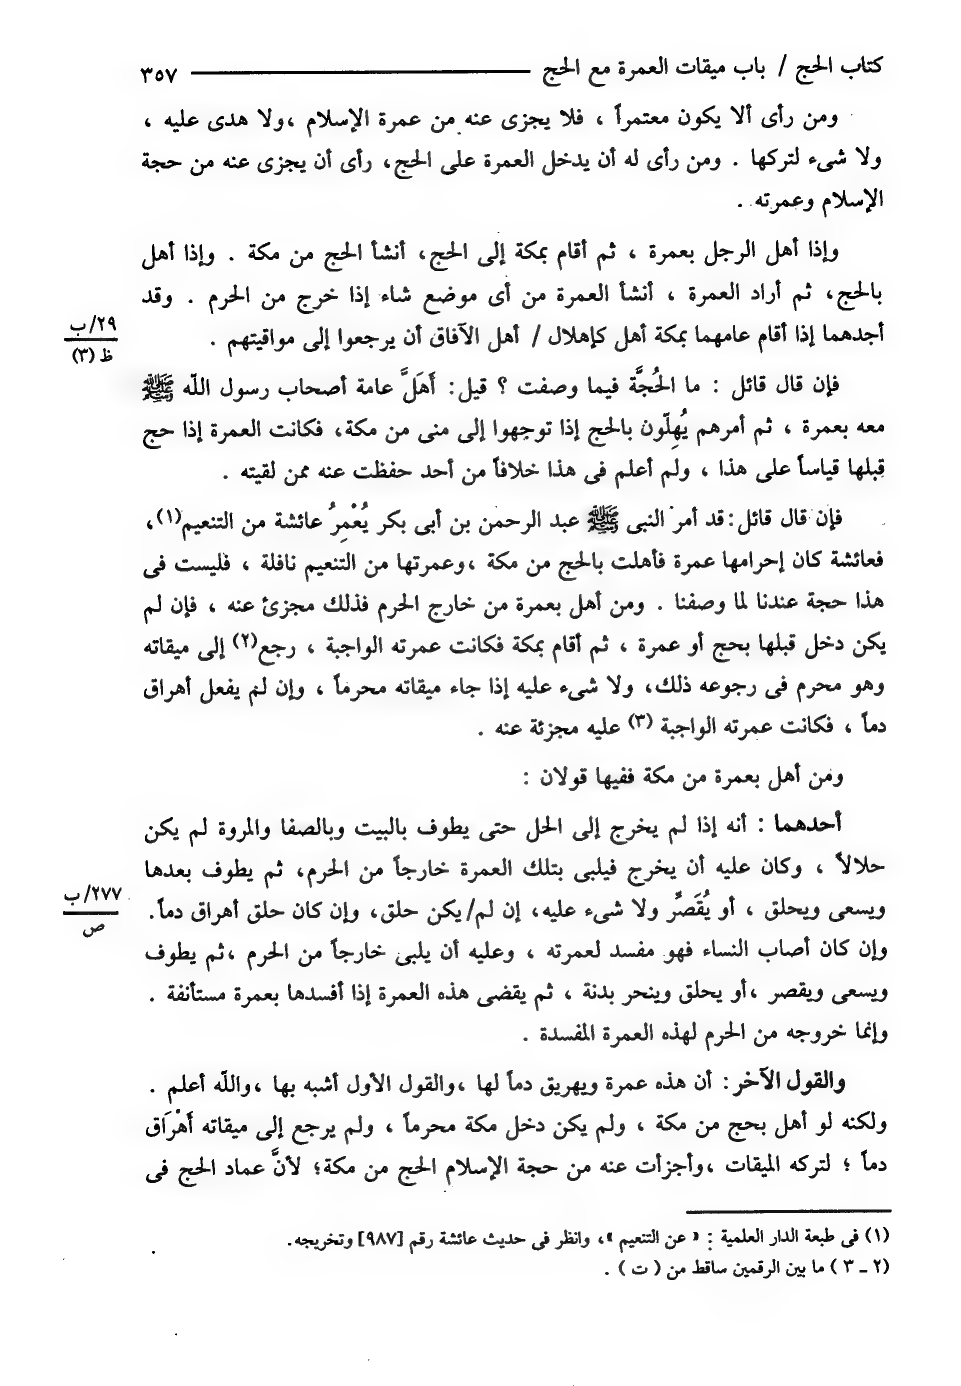 كتاب الحج / باب ميقات العمرة مع الحج ٣٥٧
ومن رأى ألا يكون معتمراً ، فلا يجزى عنه من عمرة الإسلام ،ولا هدى عليه ،
ولا شىء لتركها . ومن رأى له أن يدخل العمرة على الحج، رأى أن يجزى عنه من حجة
الإسلام وعمرته .
وإذا أهل الرجل بعمرة ، ثم أقام بمكة إلى الحج، أنشأ الحج من مكة . وإذا أهل
بالحج، ثم أراد العمرة ، أنشأ العمرة من أى موضع شاء إذا خرج من الحرم . وقد
٢٩/ب
أجدهما إذا أقام عامهما بمكة أهل كإهلال / أهل الآفاق أن يرجعوا إلى مواقيتهم .
ظ (٣)
فإن قال قائل : ما الحُجَّة فيما وصفت ؟ قيل: أَهَلَّ عامة أصحاب رسول الله ﷺ
معه بعمرة ، ثم أمرهم يُهِلّون بالحج إذا توجهوا إلى منى من مكة، فكانت العمرة إذا حج
قبلها قياساً على هذا ، ولم أعلم فى هذا خلافاً من أحد حفظت عنه ممن لقيته .
فإن قال قائل: قد أمر النبى ﷺ عبد الرحمن بن أبى بكر يُعْمِرُ عائشة من التنعيم(١)،
فعائشة كان إحرامها عمرة فأهلت بالحج من مكة ،وعمرتها من التنعيم نافلة ، فليست فى
هذا حجة عندنا لما وصفنا . ومن أهل بعمرة من خارج الحرم فذلك مجزئ عنه ، فإن لم
يكن دخل قبلها بحج أو عمرة ، ثم أقام بمكة فكانت عمرته الواجبة ، رجع(٢) إلى ميقاته
وهو محرم فى رجوعه ذلك، ولا شىء عليه إذا جاء ميقاته محرماً ، وإن لم يفعل أهراق
دماً ، فكانت عمرته الواجبة (٣) عليه مجزئة عنه .
ومن أهل بعمرة من مكة ففيها قولان :
أحدهما : أنه إذا لم يخرج إلى الحل حتى يطوف بالبيت وبالصفا والمروة لم يكن
حلالاً ، وكان عليه أن يخرج فيلبى بتلك العمرة خارجاً من الحرم، ثم يطوف بعدها
٢٧٧/ب
ويسعى ويحلق ، أو يُقَصِّر ولا شىء عليه، إن لم/ يكن حلق، وإن كان حلق أهراق دماً.
ص
وإن كان أصاب النساء فهو مفسد لعمرته ، وعليه أن يلبى خارجاً من الحرم ،ثم يطوف
ويسعى ويقصر ،أو يحلق وينحر بدنة ، ثم يقضى هذه العمرة إذا أفسدها بعمرة مستأنفة .
وإنما خروجه من الحرم لهذه العمرة المفسدة .
والقول الآخر : أن هذه عمرة ويهريق دماً لها ،والقول الأول أشبه بها ،والله أعلم .
ولكنه لو أهل بحج من مكة ، ولم يكن دخل مكة محرماً ، ولم يرجع إلى ميقاته أَهْرَاق
دماً ؛ لتركه الميقات ،وأجزأت عنه من حجة الإسلام الحج من مكة؛ لأنَّ عماد الحج فى
(١) فى طبعة الدار العلمية : « عن التنعيم »، وانظر فى حديث عائشة رقم [٩٨٧] وتخريجه.
(٢ ــ ٣ ) ما بين الرقمين ساقط من ( ت ) .